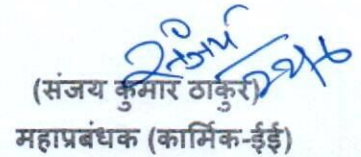 (संजय कुमार ठाकुर)
महाप्रबंधक (कार्मिक-ईई)